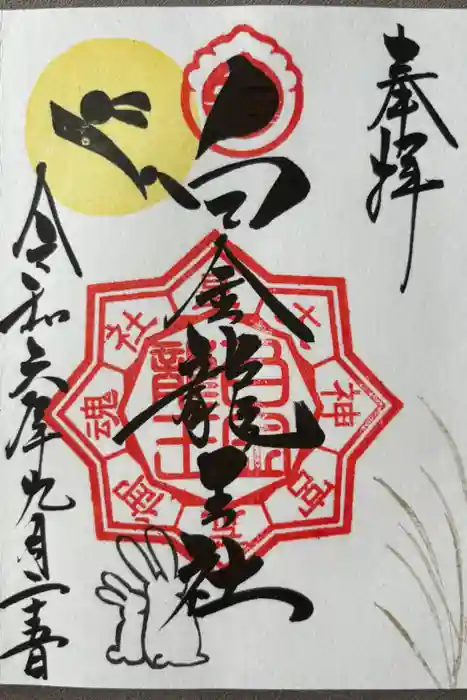 奉拝
白金龍王社
令和六年九月二十
神宮
御魂社